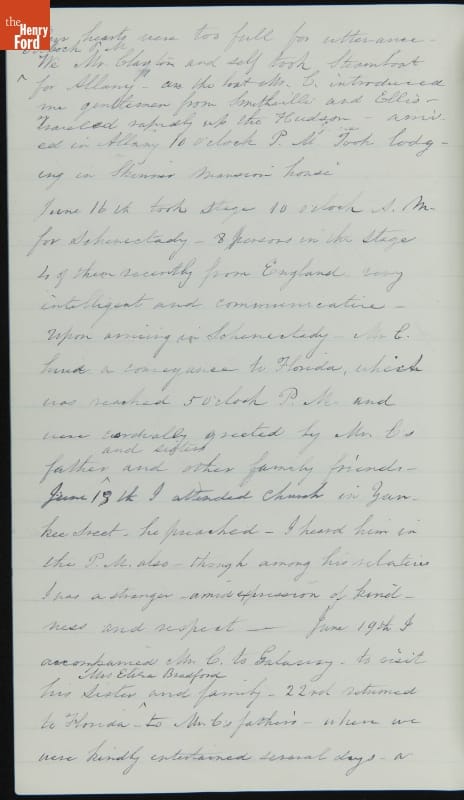 the
Henry
Ford
our hearts were too full for utterance -
o'clock P. M
We Mr. Clayton and self took Steamboat
for Albany - on the boat Mr. C. introduced
me gentlemen from Smithville and Ellis -
Traveled rapidly up the Hudson - arriv
ed in Albany 10 o'clock P. M Took lodg-
ing in Skinner Mansion house
June 16th took Stage 10 o'clock A. M.
for Schenectady - 8 persons in the Stage
4 of them recently from England very
intelligent and communicative -
Upon arriving in Schenectady - Mr C.
hired a conveyance to Florida, which
was reached 5 o'clock P. M. and
were cordially greeted by Mr. Cs
and sisters
father and other family friends -
June 13th I attended Church in Yan-
kee Street - he preached - I heard him in
the P. M. also - though among his relatives
I was a stranger - amid expression of kind-
ness and respect - June 19th I
accompanied Mr. C. to Galaway - to visit
Mrs Eliza Bradford
his Sister and family - 22nd returned
to Florida - to Mr Cs father's - where we
were kindly entertained several days - a